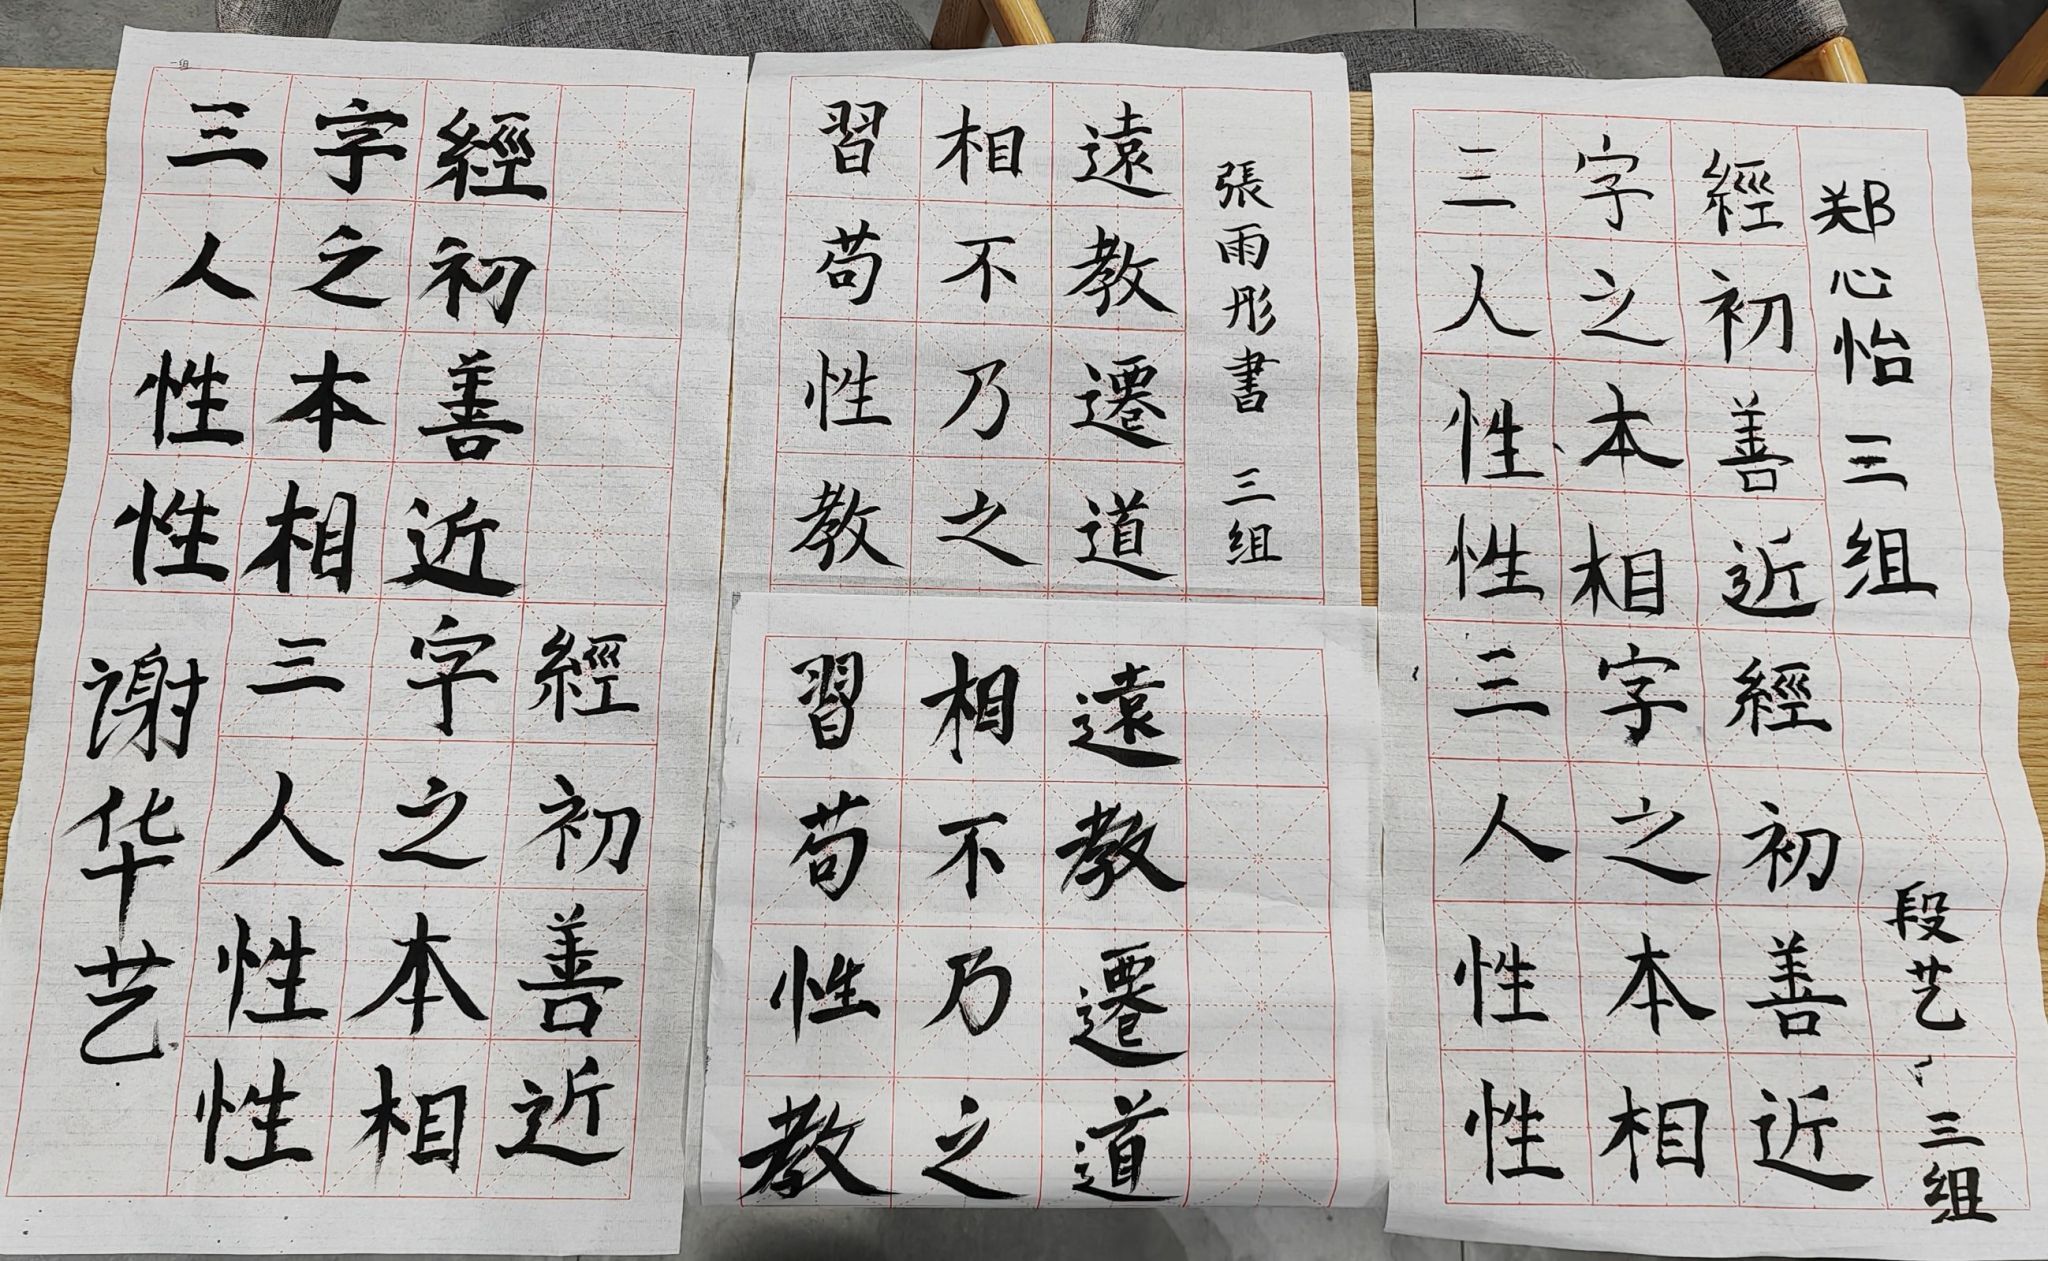 一组
三字經
人之初
性本善
性相近
三字經
人之初
性本善
性相近
谢华艺
習相遠
苟不教
性乃遷
教之道
張雨彤書 三组
習相遠
苟不教
性乃遷
教之道
三字經
人之初
性本善
性相近
郑心怡 三组
三字經
人之初
性本善
性相近
段艺 三组